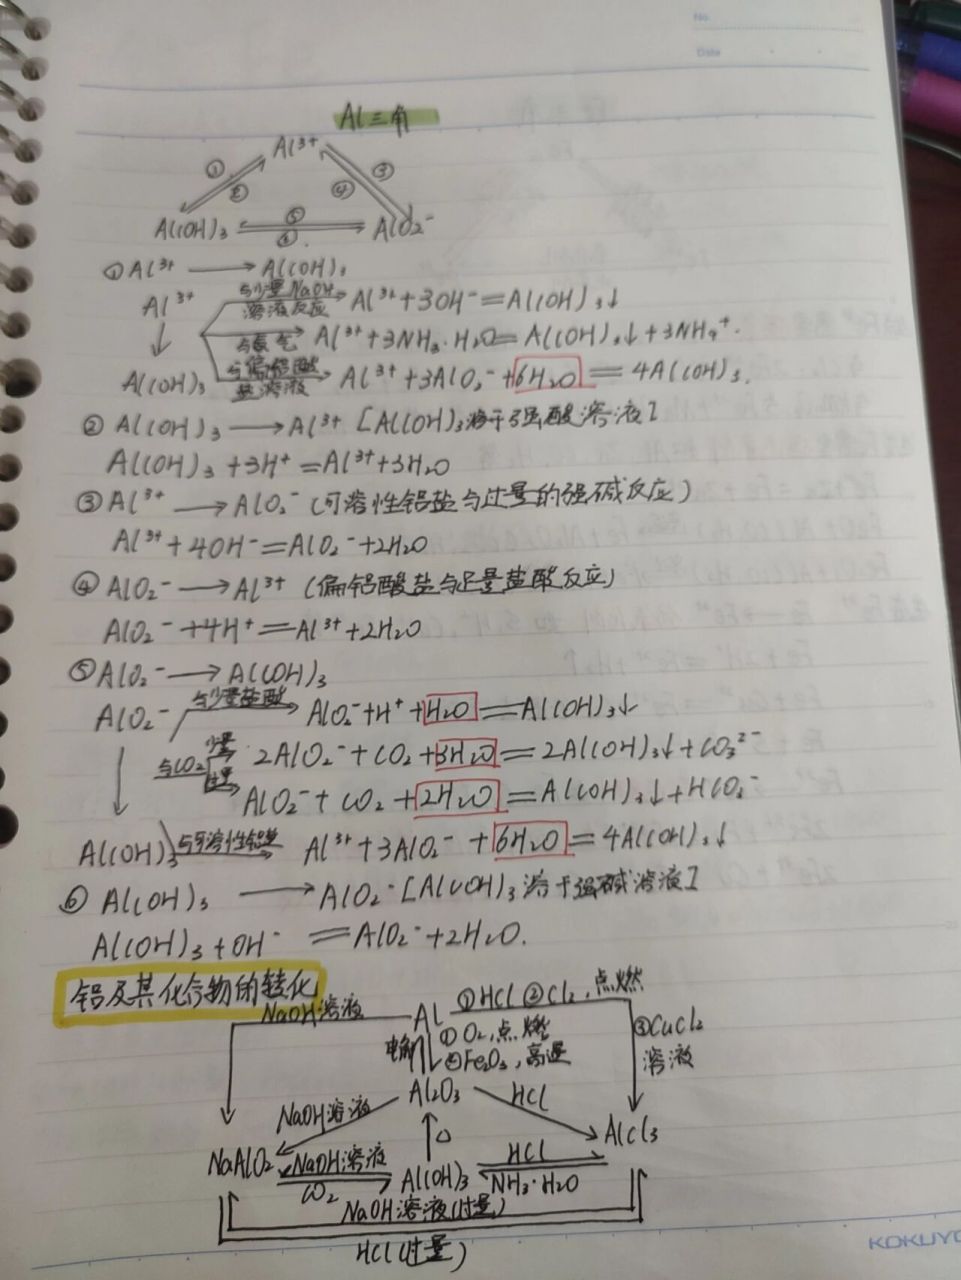 No.
Date
Al三角
Al³⁺
① ② ④ ③
Al(OH)₃ ⑤ ⑥ AlO₂⁻
①Al³⁺ ⟶ Al(OH)₃
Al³⁺ 与少量NaOH溶液反应 Al³⁺+3OH⁻=Al(OH)₃↓
与氨气 Al³⁺+3NH₃·H₂O=Al(OH)₃↓+3NH₄⁺.
Al(OH)₃ 与偏铝酸盐溶液 Al³⁺+3AlO₂⁻+6H₂O=4Al(OH)₃.
② Al(OH)₃ ⟶ Al³⁺ [Al(OH)₃溶于强酸溶液]
Al(OH)₃+3H⁺=Al³⁺+3H₂O
③ Al³⁺ ⟶ AlO₂⁻ (可溶性铝盐与过量的强碱反应)
Al³⁺+4OH⁻=AlO₂⁻+2H₂O
④ AlO₂⁻ ⟶ Al³⁺ (偏铝酸盐与足量盐酸反应)
AlO₂⁻+4H⁺=Al³⁺+2H₂O
⑤ AlO₂⁻ ⟶ Al(OH)₃
AlO₂⁻ 与少量盐酸 AlO₂⁻+H⁺+H₂O=Al(OH)₃↓
与CO₂ 少量 2AlO₂⁻+CO₂+3H₂O=2Al(OH)₃↓+CO₃²⁻
过量 AlO₂⁻+CO₂+2H₂O=Al(OH)₃↓+HCO₃⁻
Al(OH)₃ 与可溶性铝盐 Al³⁺+3AlO₂⁻+6H₂O=4Al(OH)₃↓
⑥ Al(OH)₃ ⟶ AlO₂⁻ [Al(OH)₃溶于强碱溶液]
Al(OH)₃+OH⁻=AlO₂⁻+2H₂O.
铝及其化合物的转化
NaOH溶液 Al ①HCl ②Cl₂,点燃
电解 ①O₂,点燃 ③CuCl₂
②Fe₂O₃,高温 溶液
NaOH溶液 Al₂O₃ HCl
△
NaAlO₂ NaOH溶液 Al(OH)₃ HCl AlCl₃
CO₂ NH₃·H₂O
NaOH溶液(过量)
HCl(过量)
KOKUYO